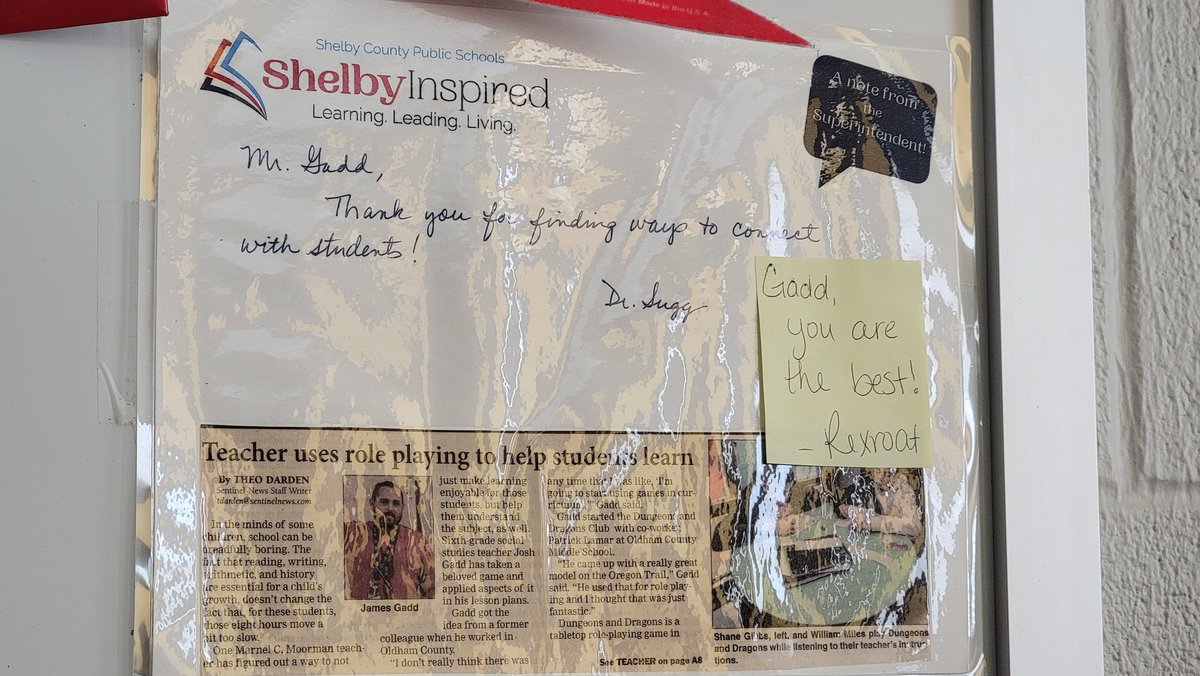 Made in the U.S.A
Shelby County Public Schools
ShelbyInspired
Learning. Leading. Living.
A note from
the
Superintendent!
Mr. Gadd,
Thank you for finding ways to connect
with students!
Dr. Sugg
Gadd,
you are
the best!
- Rexroat
Teacher uses role playing to help students learn
By THEO DARDEN
Sentinel-News Staff Writer
tdarden@sentinelnews.com
In the minds of some
children, school can be
dreadfully boring. The
fact that reading, writing,
arithmetic, and history
are essential for a child's
growth, doesn't change the
fact that, for these students,
those eight hours move a
bit too slow.
One Marnel C. Moorman teach-
er has figured out a way to not
James Gadd
just make learning
enjoyable for those
students, but help
them understand
the subject, as well.
Sixth-grade social
studies teacher Josh
Gadd has taken a
beloved game and
applied aspects of it
in his lesson plans.
Gadd got the
idea from a former
colleague when he worked in
Oldham County.
"I don't really think there was
any time that I was like, 'I'm
going to start using games in cur-
riculum,'" Gadd said.
Gadd started the Dungeons and
Dragons Club with co-worker
Patrick Lamar at Oldham County
Middle School.
"He came up with a really great
model on the Oregon Trail," Gadd
said. "He used that for role play-
ing and I thought that was just
fantastic."
Dungeons and Dragons is a
tabletop role-playing game in
See TEACHER on page A8
Shane Gibbs, left, and William Miles play Dungeons
and Dragons while listening to their teacher's instruc-
tions.